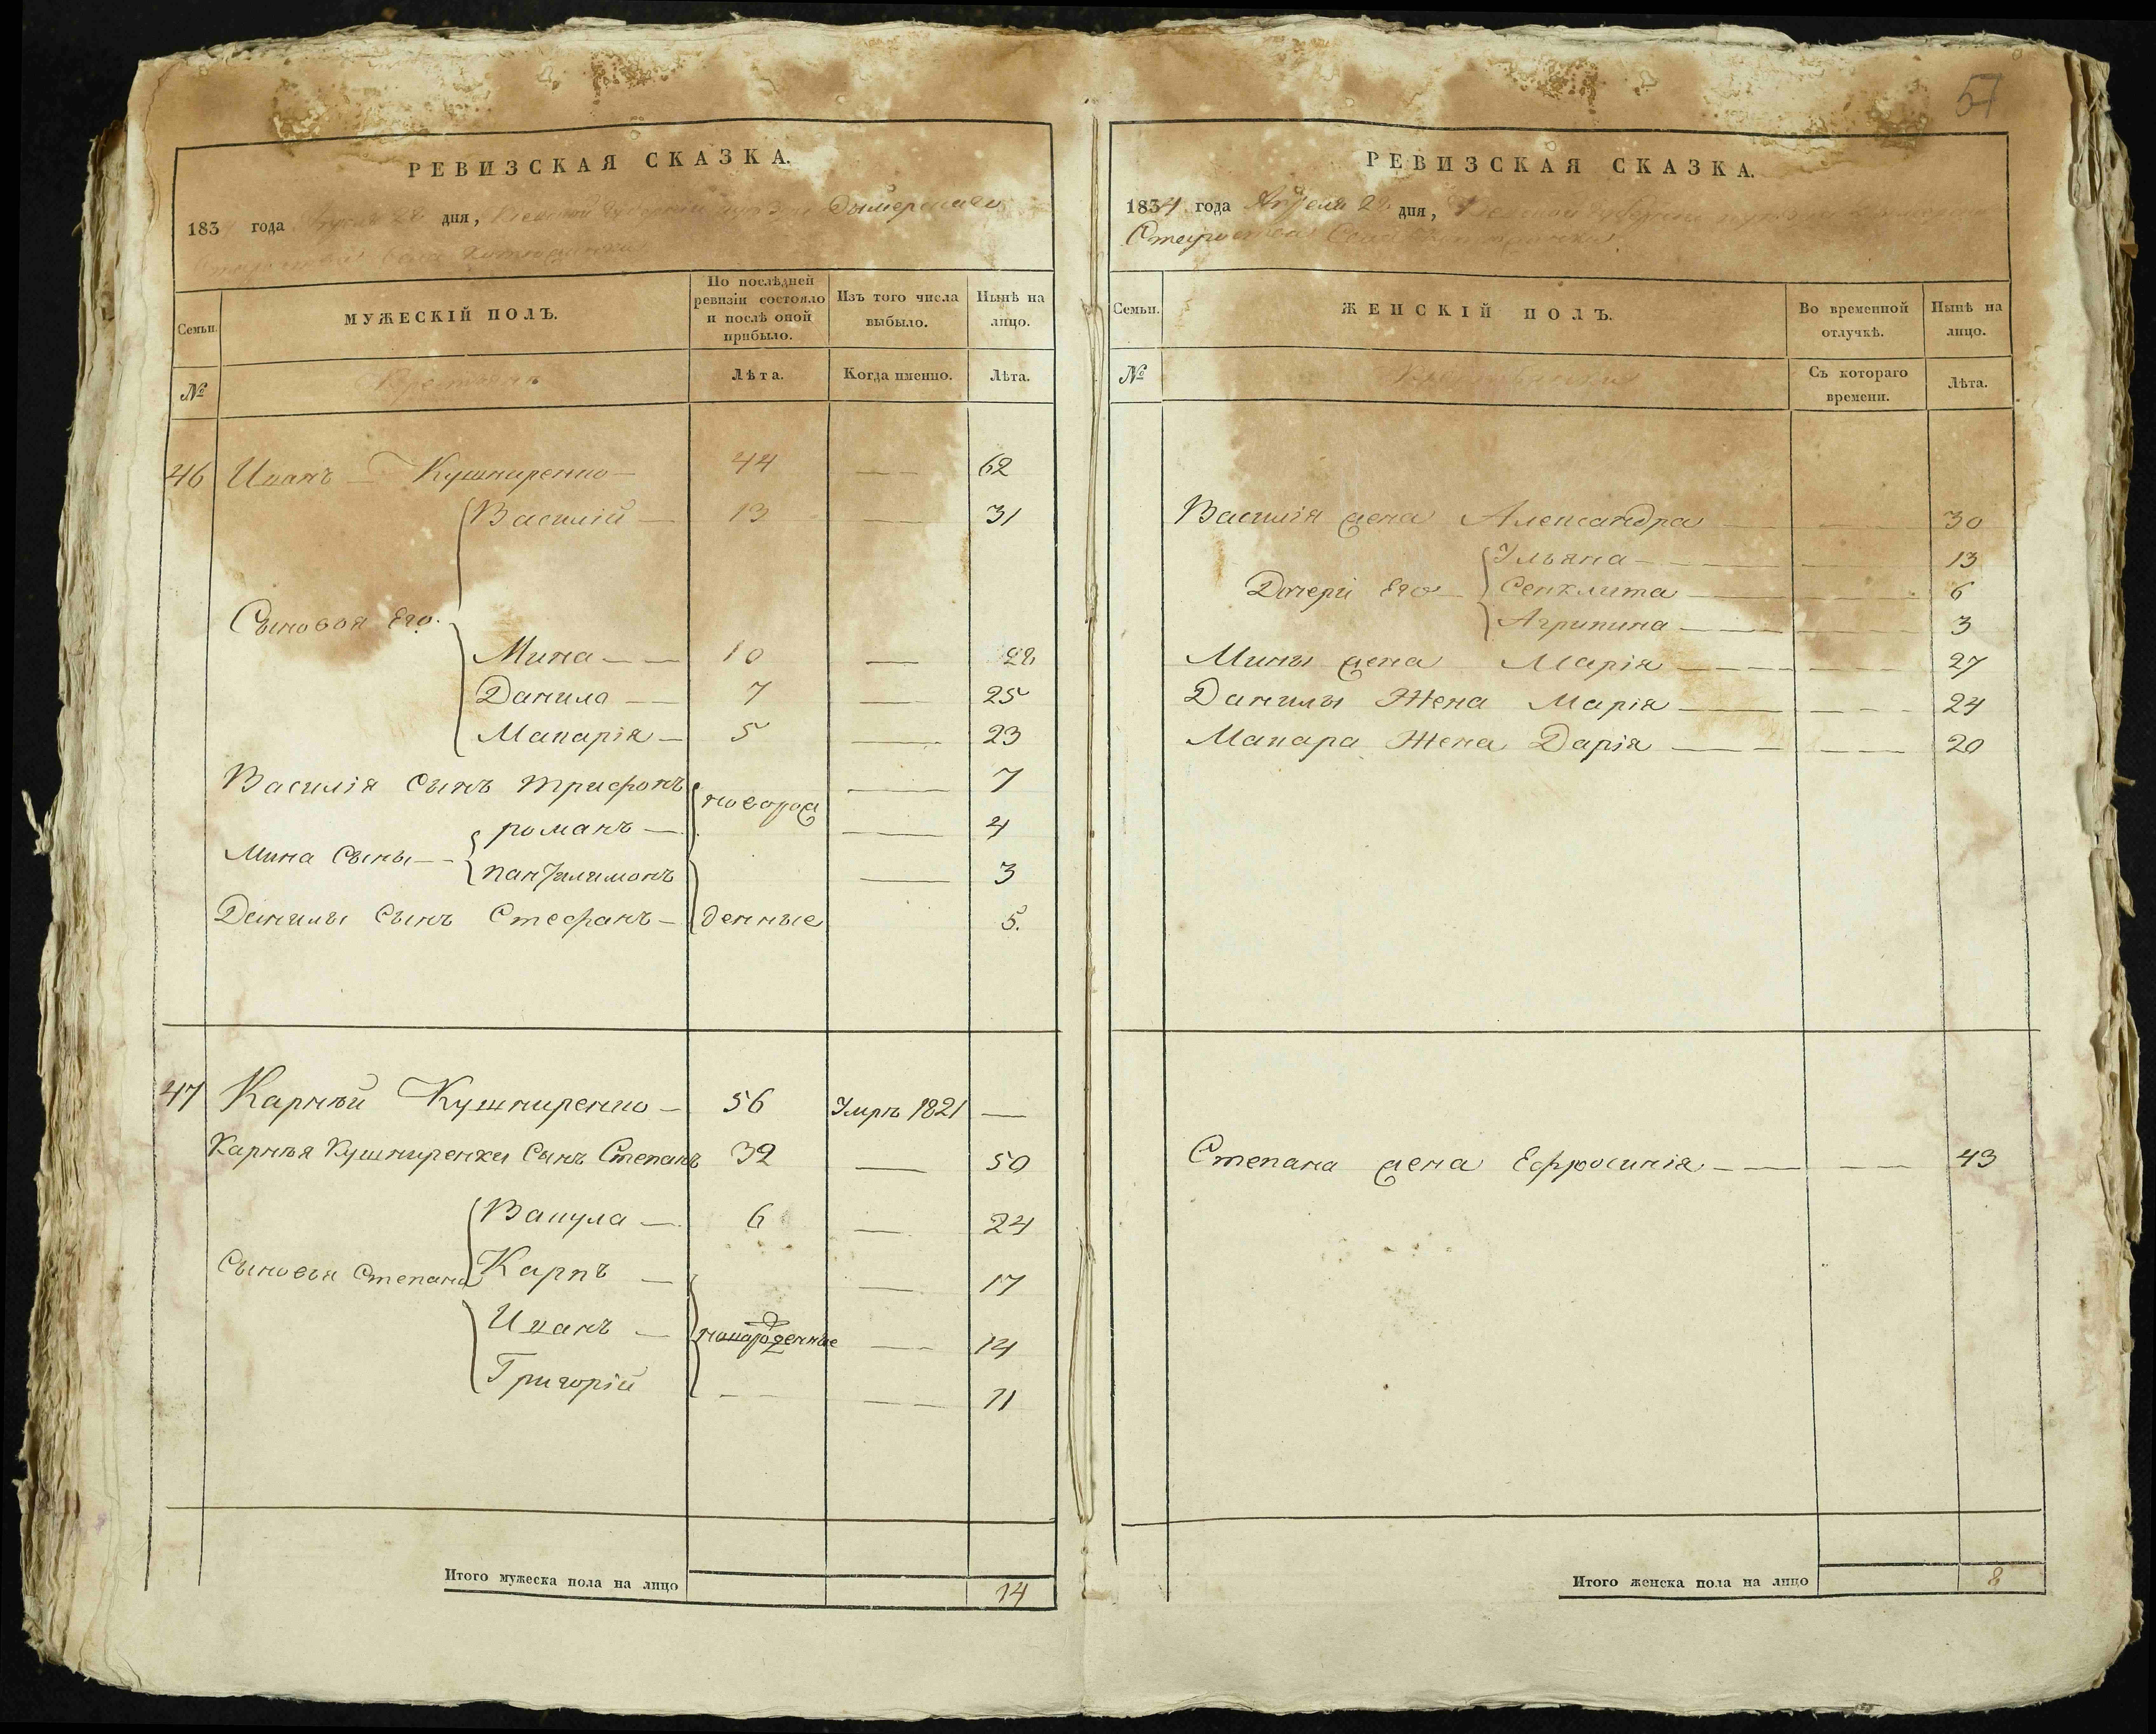 57
РЕВИЗСКАЯ СКАЗКА.
183 года дня, Дымерскаго
Семьи.
МУЖЕСКІЙ ПОЛЪ.
По послѣдней ревизіи состояло и послѣ оной прибыло.
Изъ того числа выбыло.
Нынѣ на лицо.
№
Лѣта.
Когда именно.
Лѣта.
46 Иванъ — Кушниренко — 44 — 62
Василій — 13 — 31
Сыновья Его.
Мина — 10 — 28
Данило — 7 — 25
Макарія — 5 — 23
Василія Сынъ Трифонъ — 7
новорож
романъ — 4
Мина Сыны —
панфилимонъ — 3
Данилы Сынъ Стефанъ — денные 5.
47 Карнѣй Кушниренко — 56 Умръ 1821 —
Карнѣя Кушниренки Сынъ Степанъ 32 — 50
Вакула — 6 — 24
Сыновья Степана Карпъ — — 17
Иванъ — новорожденные — 14
Григорій — — 11
Итого мужеска пола на лицо 14
РЕВИЗСКАЯ СКАЗКА.
1834 года Апреля 22 дня, Кіевской Губерніи
Староства Села
Семьи.
ЖЕНСКІЙ ПОЛЪ.
Во временной отлучкѣ.
Нынѣ на лицо.
№
Съ котораго времени.
Лѣта.
Василія жена Александра — — 30
Ульяна — — 13
Дочери Его — Сенклита — — 6
Агрипина — — 3
Мины жена Марія — — 27
Данилы Жена Марія — — 24
Макара Жена Дарія — — 20
Степана жена Ефросинія — — 43
Итого женска пола на лицо 8